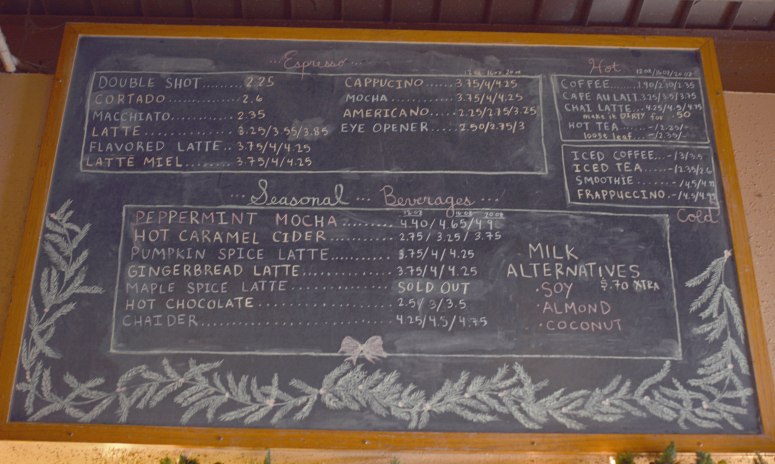 Espresso
DOUBLE SHOT....... 2.25
CORTADO............ 2.6
MACCHIATO.......... 2.35
LATTE............ 3.25/3.55/3.85
FLAVORED LATTE.. 3.75/4/4.25
LATTÉ MIEL....... 3.75/4/4.25
12oz 16oz 20oz
CAPPUCINO...... 3.75/4/4.25
MOCHA........... 3.75/4/4.25
AMERICANO.... 2.25/2.75/3.25
EYE OPENER.... 2.50/2.75/3
Hot
12oz/16oz/20oz
COFFEE....... 1.90/2.10/2.35
CAFE AU LAIT. 3.25/3.5/3.75
CHAI LATTE... 4.25/4.5/4.75
make it DIRTY for .50
HOT TEA....... -/2.25/-
loose leaf... -/2.35/-
ICED COFFEE...-/3/3.5
ICED TEA.....-/2.35/2.6
SMOOTHIE.......-/4.5/4.75
FRAPPUCCINO.-/4.5/4.75
Cold
... Seasonal ... Beverages ...
12oz 16oz 20oz
PEPPERMINT MOCHA.......... 4.40/4.65/4.9
HOT CARAMEL CIDER.......... 2.75/3.25/3.75
PUMPKIN SPICE LATTE........ 3.75/4/4.25
GINGERBREAD LATTE............ 3.75/4/4.25
MAPLE SPICE LATTE............ SOLD OUT
HOT CHOCOLATE................ 2.5/3/3.5
CHAIDER........................ 4.25/4.5/4.75
MILK
ALTERNATIVES
·SOY $.70 XTRA
·ALMOND
·COCONUT